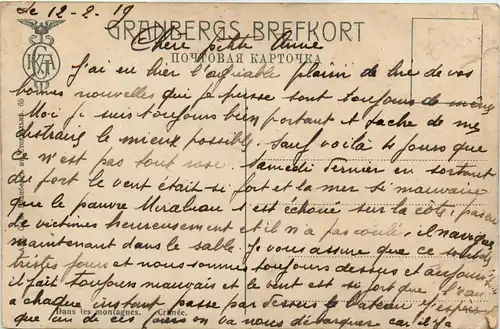 le 12-2-19
GRANBERGS BREFKORT
Chère petite Anne
ПОЧТОВАЯ КАРТОЧКА
J'ai eu hier l'agréable plaisir de lire de vos
bonnes nouvelles qui je puisse sont toujours de même
Moi je suis toujours bien portant & tache de me
distraire le mieux possible. Sauf voilà 4 jours que
ce n'est pas tout rose. Samedi dernier en sortant
du fort le vent était si fort et la mer si mauvaise
que le pauvre Mirabeau s'est échoué sur la côte, pas eu
de victimes heureusement et il n'a pas coulé, il navigue
maintenant dans le sable. Je vous assure que ce sont des
tristes jours et nous sommes toujours dessus et aujourd'hui
il fait toujours mauvais et le vent est si fort que l'eau
a chaque instant passe par dessus le bateau J'espère
Dans les montagnes. Crimée.
que un de ces jours on va nous débarquer car